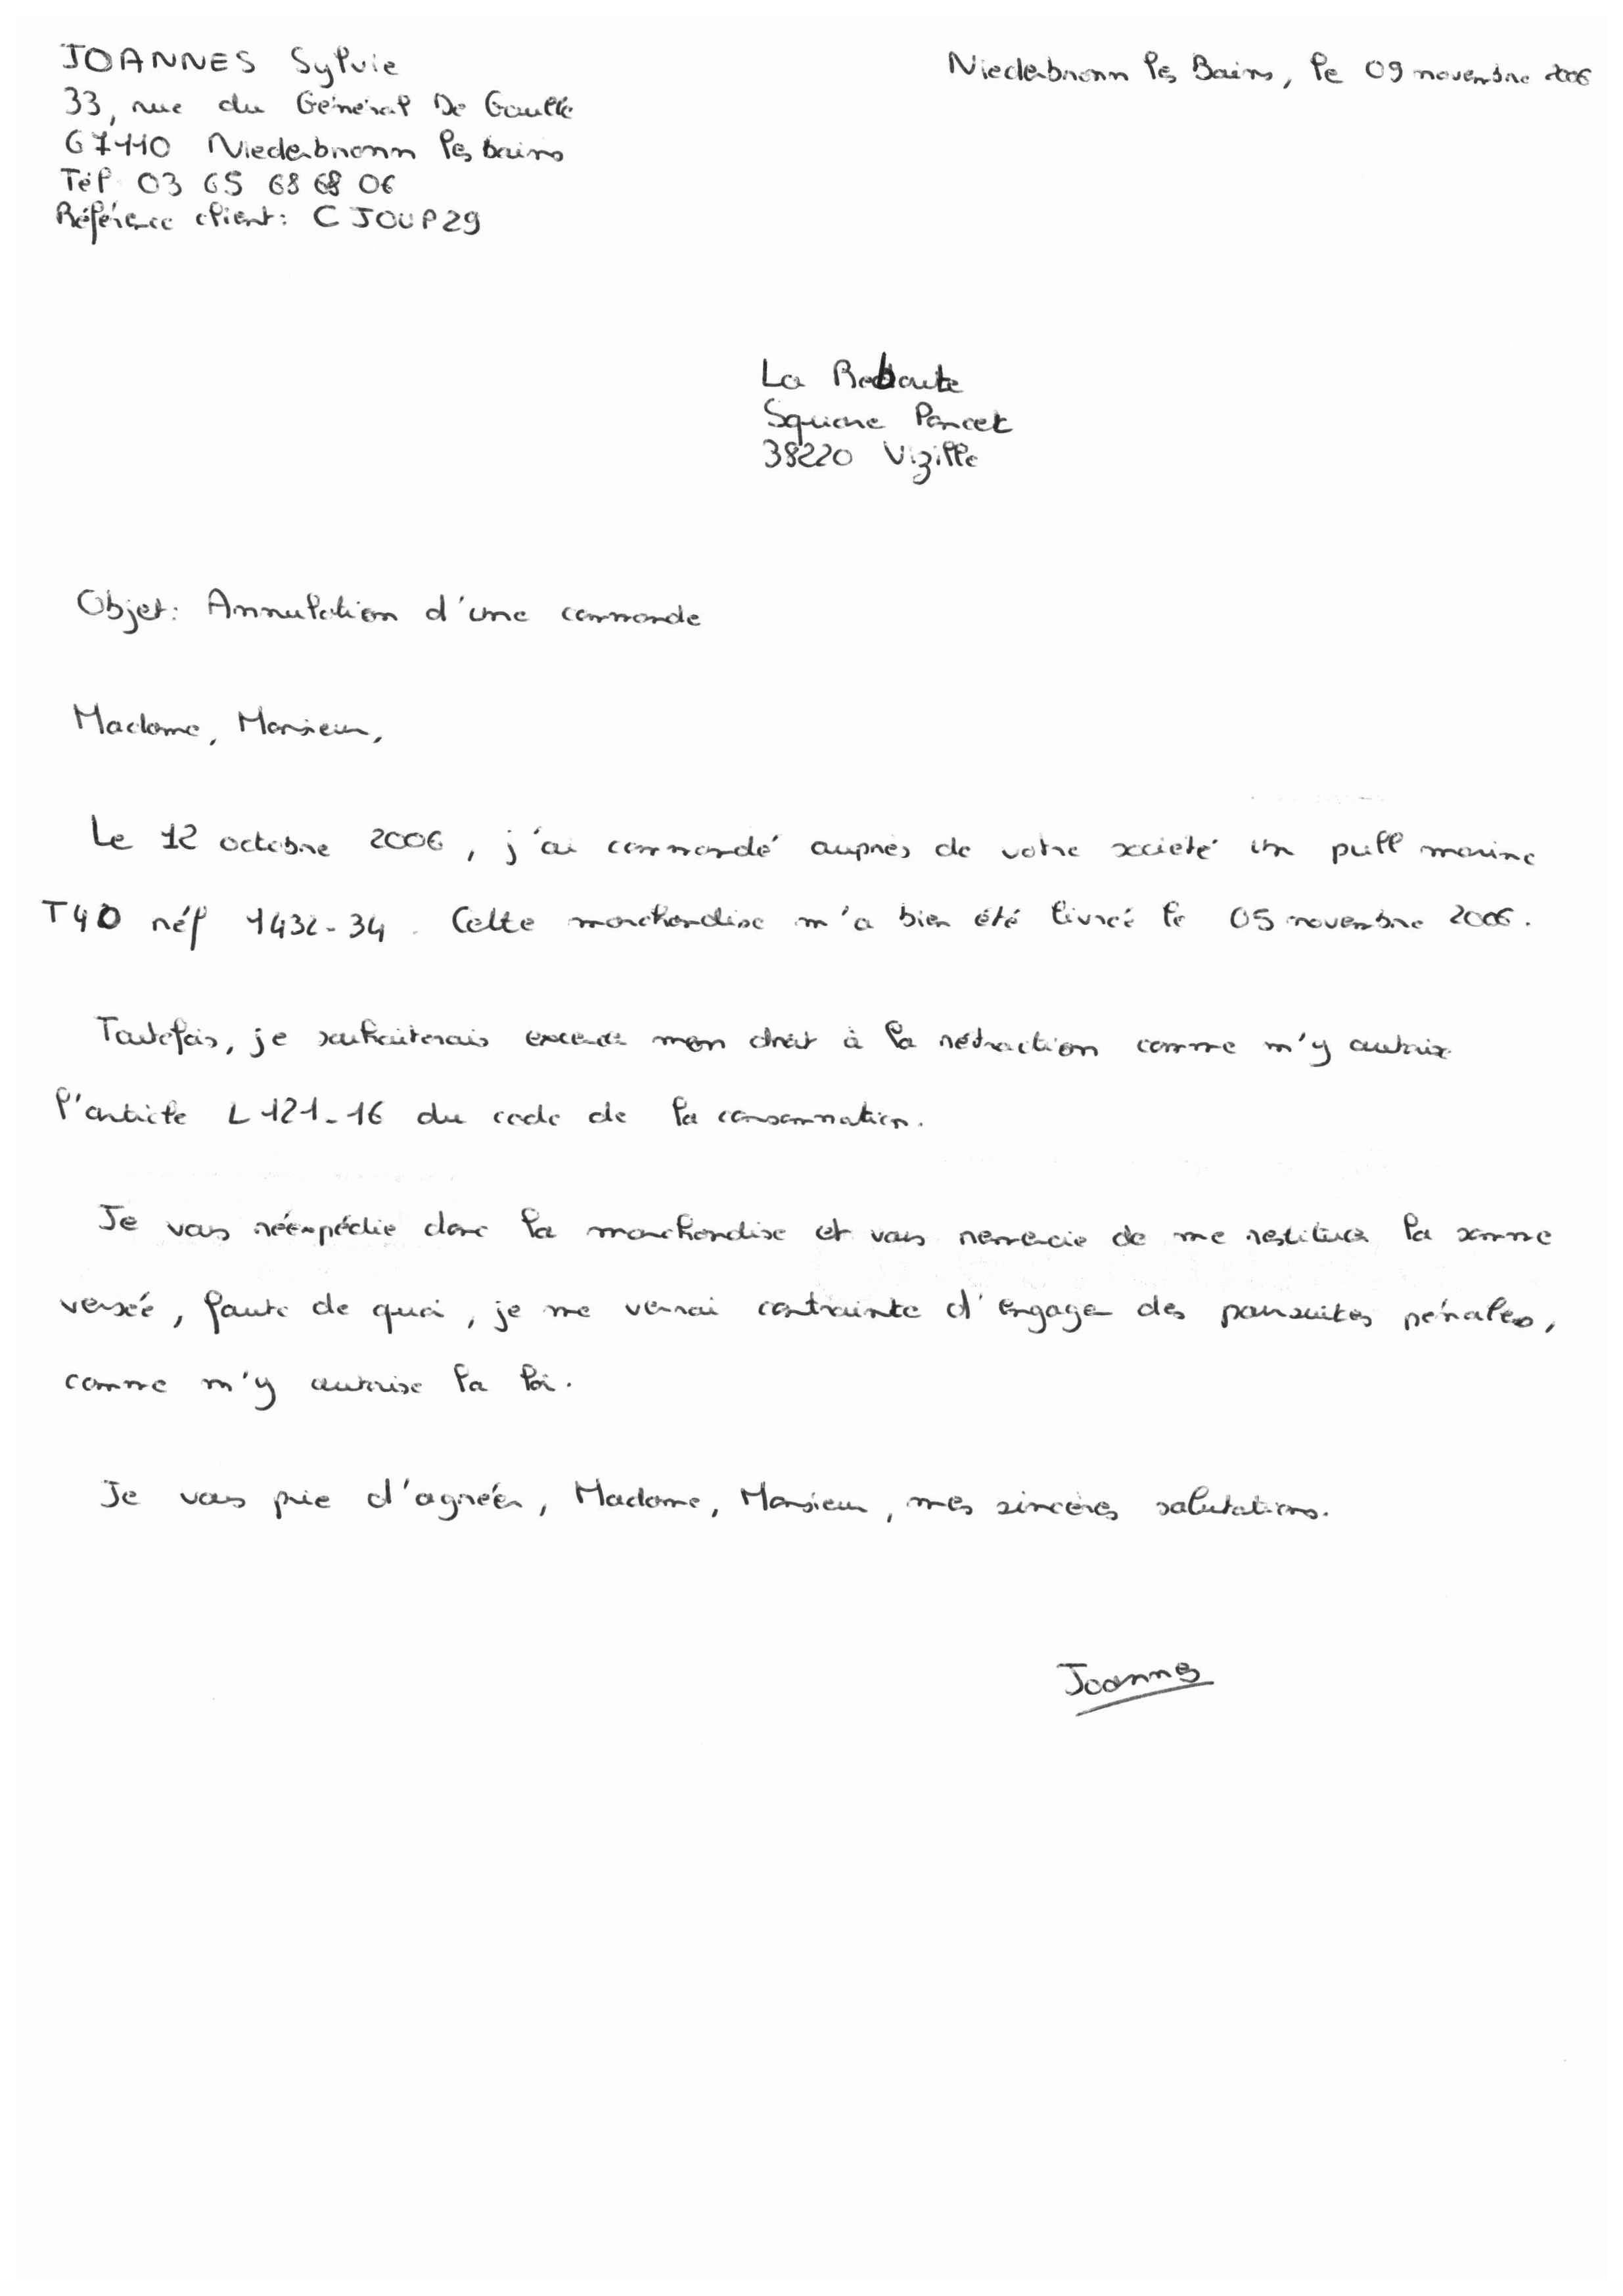 JOANNES Sylvie
Niederbronn les Bains, le 09 novembre 2006
33, rue du Général De Gaulle
67110 Niederbronn les bains
Tél 03 65 68 68 06
Référence client: CJOUP29
La Redoute
Square Poncet
38220 Vizille
Objet: Annulation d'une commande
Madame, Monsieur,
Le 12 octobre 2006, j'ai commandé auprès de votre société un pull marine
T40 réf 1432-34. Cette marchandise m'a bien été livrée le 05 novembre 2006.
Toutefois, je souhaiterais exercer mon droit à la rétraction comme m'y autorise
l'article L121-16 du code de la consommation.
Je vous réexpédie donc la marchandise et vous remercie de me restituer la somme
versée, faute de quoi, je me verrai contrainte d'engager des poursuites pénales,
comme m'y autorise la loi.
Je vous prie d'agréér, Madame, Monsieur, mes sincères salutations.
Joannes